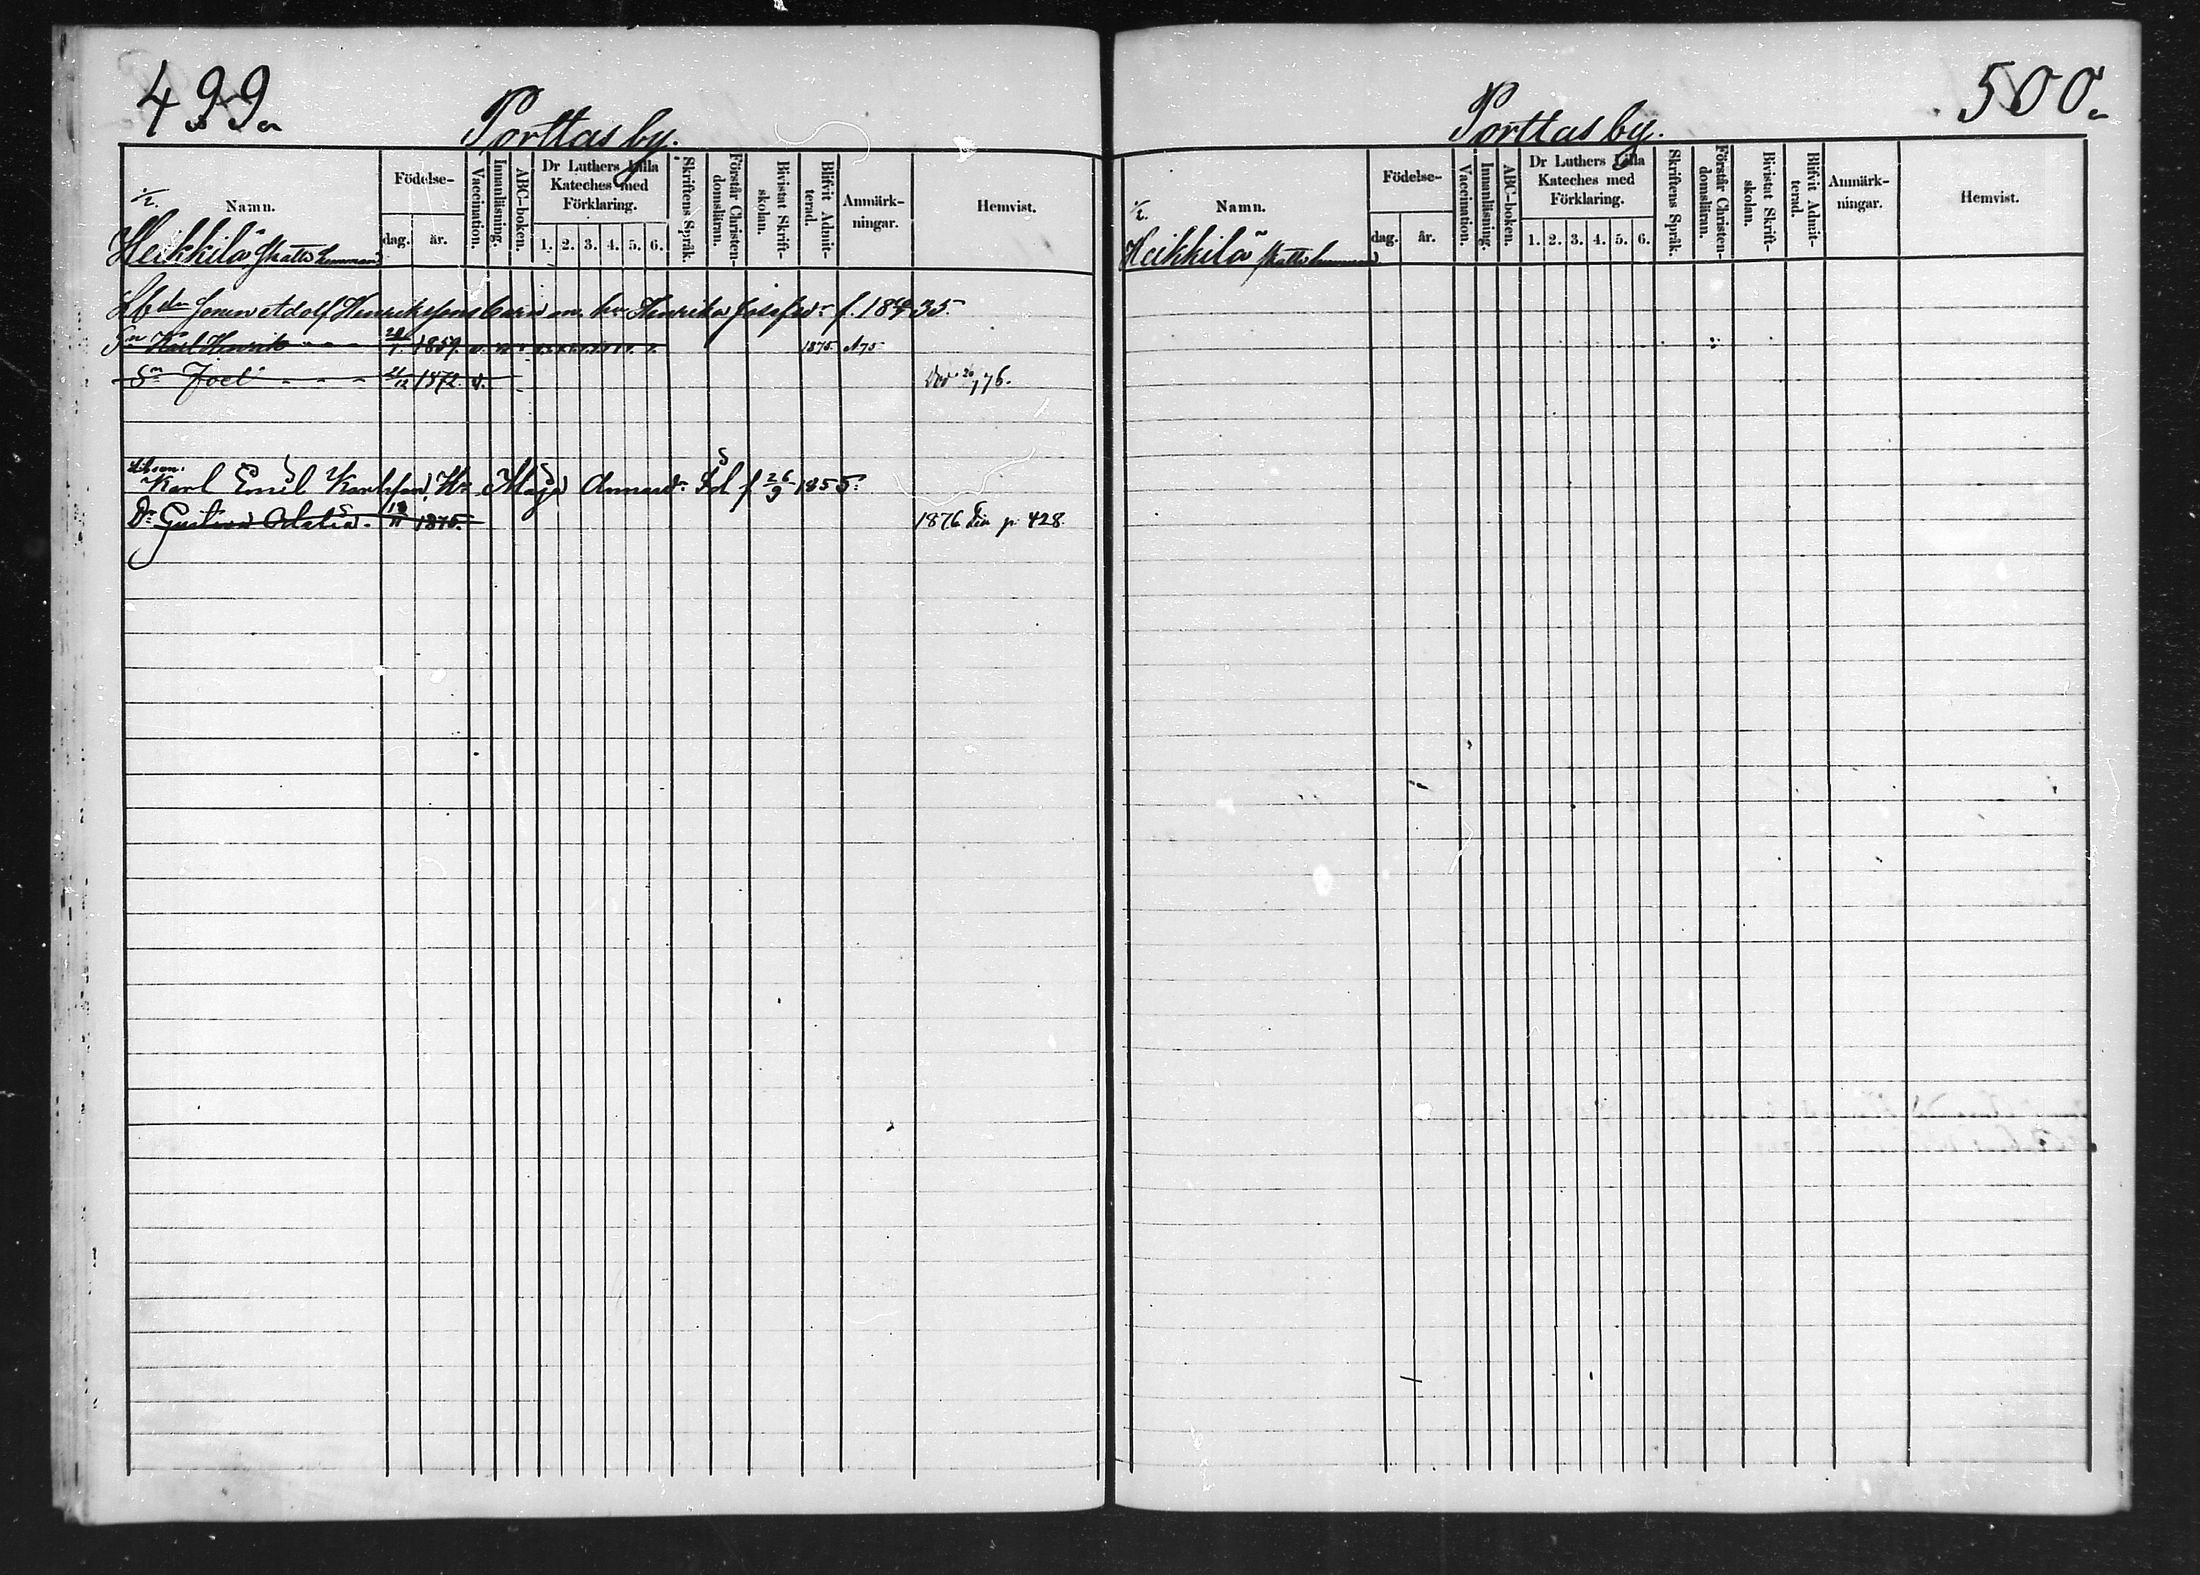 499.
Porttas by.
½.
Namn.
Födelse-
dag. år.
Vaccination.
Innanläsning.
ABC-boken.
Dr Luthers Lilla Kateches med Förklaring.
1. 2. 3. 4. 5. 6.
Skriftens Språk.
Förstår Christendomsläran.
Bivistat Skriftskolan.
Blifvit Admitterad.
Anmärkningar.
Hemvist.
Heikkilä Skatte hemman
Adolf Henrikssons barn m. h. Henrika Josefsdr f. 1835.
Sn Karl Henrik 1859. v. 1875 A 75
Sn Joel 1872. v. 76.
Karl Emil Karlsson, Hu Maja Annasdr f 26/9 1855.
Dr Gustava 1875. 1876 p. 428.
500.
Porttas by.
½.
Namn.
Födelse-
dag. år.
Vaccination.
Innanläsning.
ABC-boken.
Dr Luthers Lilla Kateches med Förklaring.
1. 2. 3. 4. 5. 6.
Skriftens Språk.
Förstår Christendomsläran.
Bivistat Skriftskolan.
Blifvit Admitterad.
Anmärkningar.
Hemvist.
Heikkilä Skatte hemman